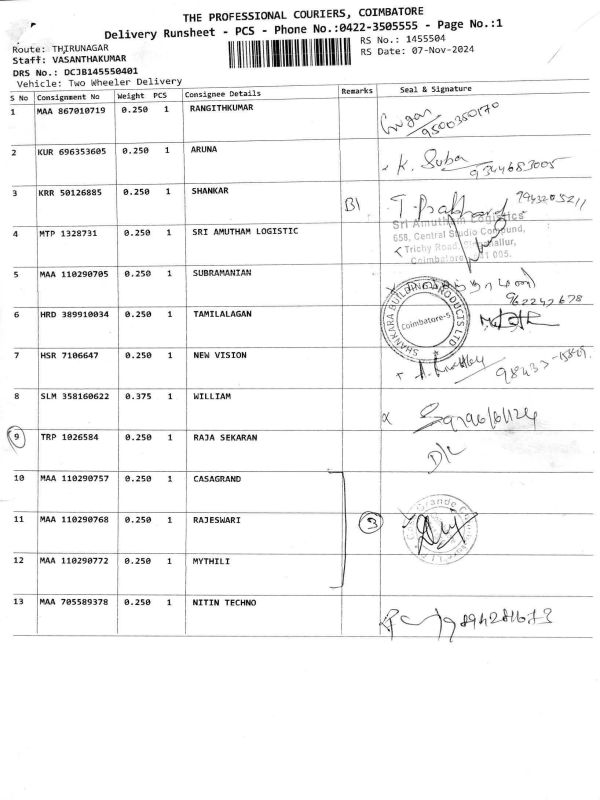 THE PROFESSIONAL COURIERS, COIMBATORE
Delivery Runsheet - PCS - Phone No.:0422-3505555 - Page No.:1
Route: THIRUNAGAR
RS No.: 1455504
Staff: VASANTHAKUMAR
RS Date: 07-Nov-2024
DRS No.: DCJB145550401
Vehicle: Two Wheeler Delivery
S No Consignment No Weight PCS Consignee Details Remarks Seal & Signature
1 MAA 867010719 0.250 1 RANGITHKUMAR
9500350170
2 KUR 696353605 0.250 1 ARUNA
K. Suba
9344683005
3 KRR 50126885 0.250 1 SHANKAR
9943205211
4 MTP 1328731 0.250 1 SRI AMUTHAM LOGISTIC
Sri Amutham Logistics
658, Central Studio Compound,
Trichy Road, Singanallur,
Coimbatore 641 005.
5 MAA 110290705 0.250 1 SUBRAMANIAN
9622427678
6 HRD 389910034 0.250 1 TAMILALAGAN
SHANKARA BUILDING PRODUCTS LTD
Coimbatore-5
7 HSR 7106647 0.250 1 NEW VISION
8 SLM 358160622 0.375 1 WILLIAM
9 TRP 1026584 0.250 1 RAJA SEKARAN
D/L
10 MAA 110290757 0.250 1 CASAGRAND
11 MAA 110290768 0.250 1 RAJESWARI
3
12 MAA 110290772 0.250 1 MYTHILI
13 MAA 705589378 0.250 1 NITIN TECHNO
9894281673